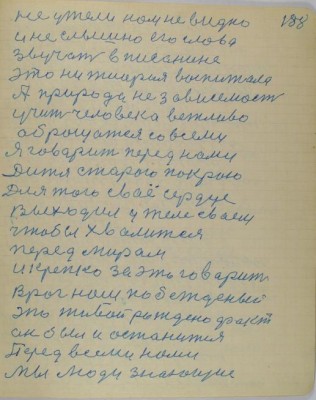 не ужели нам не видно 188
и не слышно его слова
звучат в писанине
это ни тиория воспитала
А природа не зависемость
учит человека вежливо
оброщатся со всеми
Я говарит перед нами
Дитя старого покрою
Для того своё сердце
выходил у теле своем
чтобы хвалится
перед мирам
и крепко за это говарит
Враг наш побежденый
это живой рождено факт
он был и останится
Перед всеми нами
Мы люди знающие